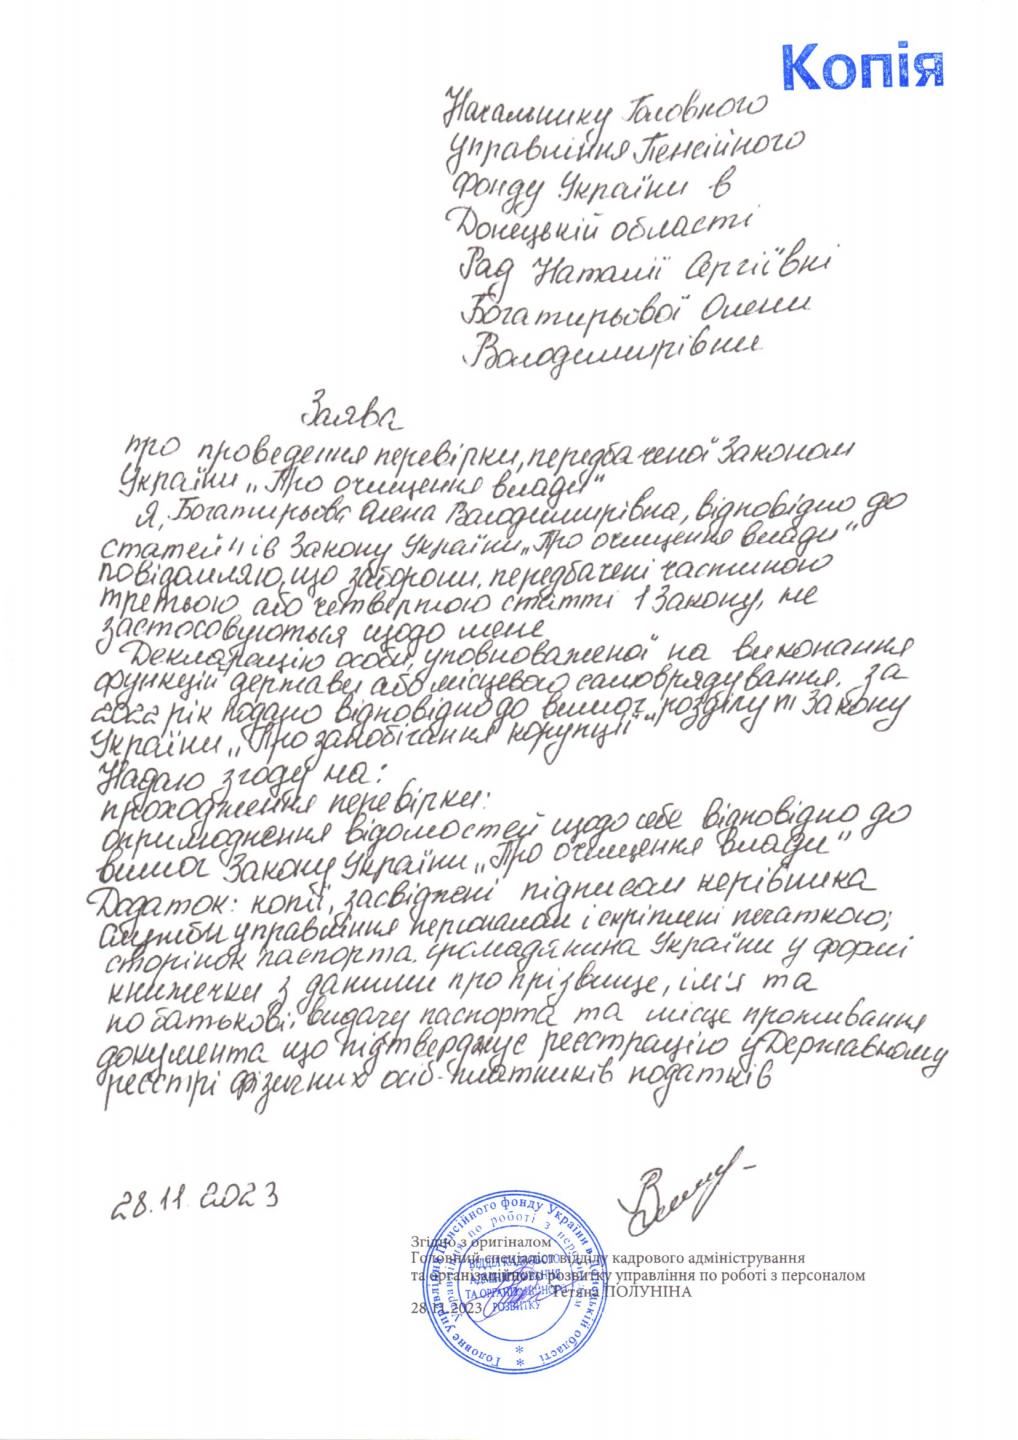 Копія
Начальнику Головного
управління Пенсійного
фонду України в
Донецькій області
Рад Наталії Сергіївні
Богатирьової Олени
Володимирівни
Заява
про проведення перевірки, передбаченої Законом
України „Про очищення влади"
Я, Богатирьова Олена Володимирівна, відповідно до
статей 4 і 6 Закону України „Про очищення влади"
повідомляю, що заборони, передбачені частиною
третьою або четвертою статті 1 Закону, не
застосовуються щодо мене
Декларацію особи, уповноваженої на виконання
функцій держави або місцевого самоврядування, за
2022 рік подано відповідно до вимог розділу VII Закону
України „Про запобігання корупції"
Надаю згоду на:
проходження перевірки:
оприлюднення відомостей щодо себе відповідно до
вимог Закону України „Про очищення влади"
Додаток: копії, засвідчені підписом керівника
служби управління персоналом і скріплені печаткою;
сторінок паспорта громадянина України у формі
книжечки з даними про прізвище, ім'я та
по батькові, видачу паспорта та місце проживання
документа що підтверджує реєстрацію у Державному
реєстрі фізичних осіб-платників податків
28.11.2023
Згідно з оригіналом
Головний спеціаліст відділу кадрового адміністрування
та організаційного розвитку управління по роботі з персоналом
Тетяна ПОЛУНІНА
28.11.2023
Головне управління Пенсійного фонду України в Донецькій області
Управління по роботі з персоналом
ВІДДІЛ КАДРОВОГО
АДМІНІСТРУВАННЯ
ТА ОРГАНІЗАЦІЙНОГО
РОЗВИТКУ